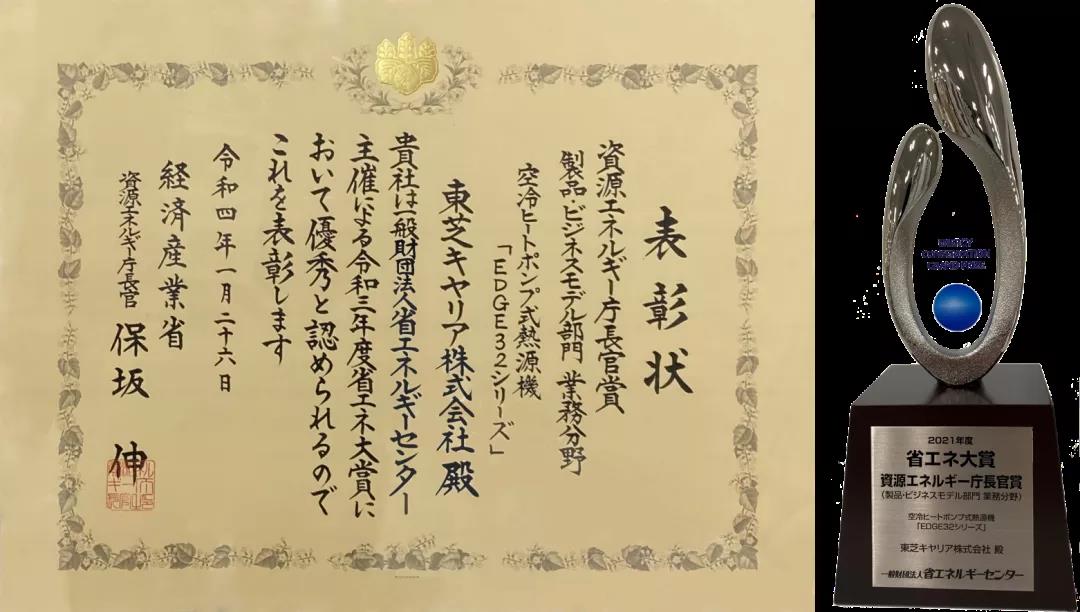 表彰状
資源エネルギー庁長官賞
製品・ビジネスモデル部門 業務分野
空冷ヒートポンプ式熱源機
「EDGE32シリーズ」
東芝キヤリア株式会社 殿
貴社は一般財団法人省エネルギーセンター
主催による令和三年度省エネ大賞に
おいて優秀と認められるので
これを表彰します
令和四年一月二十六日
経済産業省
資源エネルギー庁長官 保坂 伸
2021年度
省エネ大賞
資源エネルギー庁長官賞
(製品・ビジネスモデル部門 業務分野)
空冷ヒートポンプ式熱源機
「EDGE32シリーズ」
東芝キヤリア株式会社 殿
一般財団法人 省エネルギーセンター